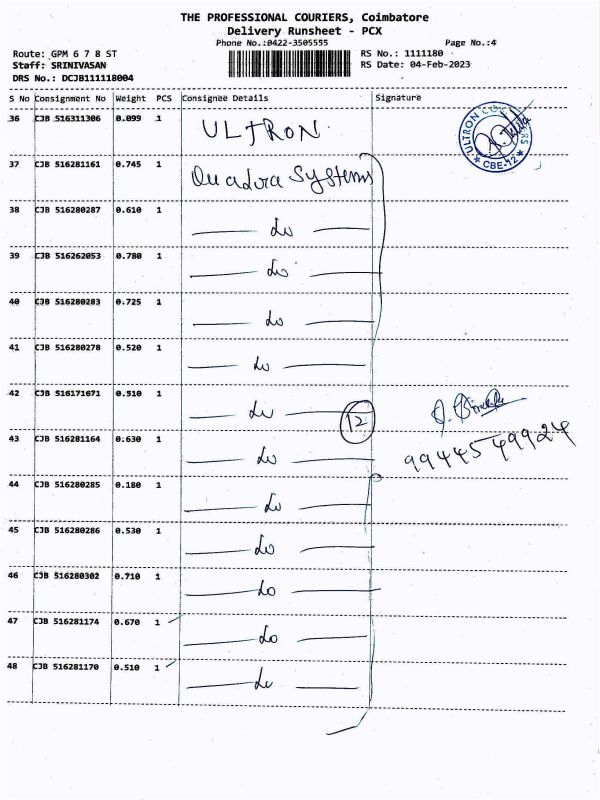 THE PROFESSIONAL COURIERS, Coimbatore
Delivery Runsheet - PCX
Phone No.:0422-3505555
Page No.:4
Route: GPM 6 7 8 ST
RS No.: 1111180
Staff: SRINIVASAN
RS Date: 04-Feb-2023
DRS No.: DCJB111118004
S No Consignment No Weight PCS Consignee Details Signature
36 CJB 516311306 0.099 1 ULTRON
ULTRON COURIERS
* CBE-12 *
37 CJB 516281161 0.745 1 Quadra Systems
38 CJB 516280287 0.610 1 — do —
39 CJB 516262053 0.780 1 — do —
40 CJB 516280283 0.725 1 — do —
41 CJB 516280278 0.520 1 — do —
42 CJB 516171671 0.510 1 — do —
12
43 CJB 516281164 0.630 1 — do —
9944549924
44 CJB 516280285 0.180 1 — do —
45 CJB 516280286 0.530 1 — do —
46 CJB 516280302 0.710 1 — do —
47 CJB 516281174 0.670 1 — do —
48 CJB 516281170 0.510 1 — do —